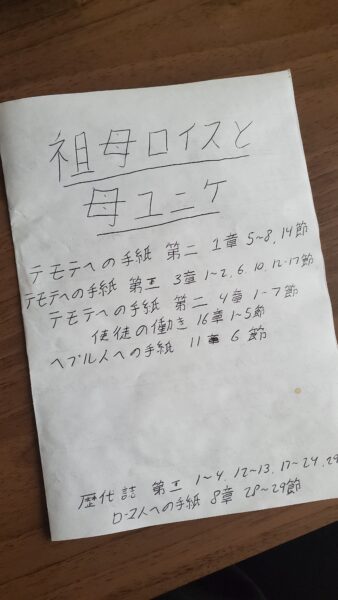 祖母ロイスと
母ユニケ
テモテへの手紙 第二 1章 5~8、14節
テモテへの手紙 第三 3章 1~2、6、10、12~17節
テモテへの手紙 第二 4章 1~7節
使徒の働き 16章 1~5節
ヘブル人への手紙 11章 6節
歴代誌 第 1~4、12~13、17~24、29
ローマ人への手紙 8章 28~29節